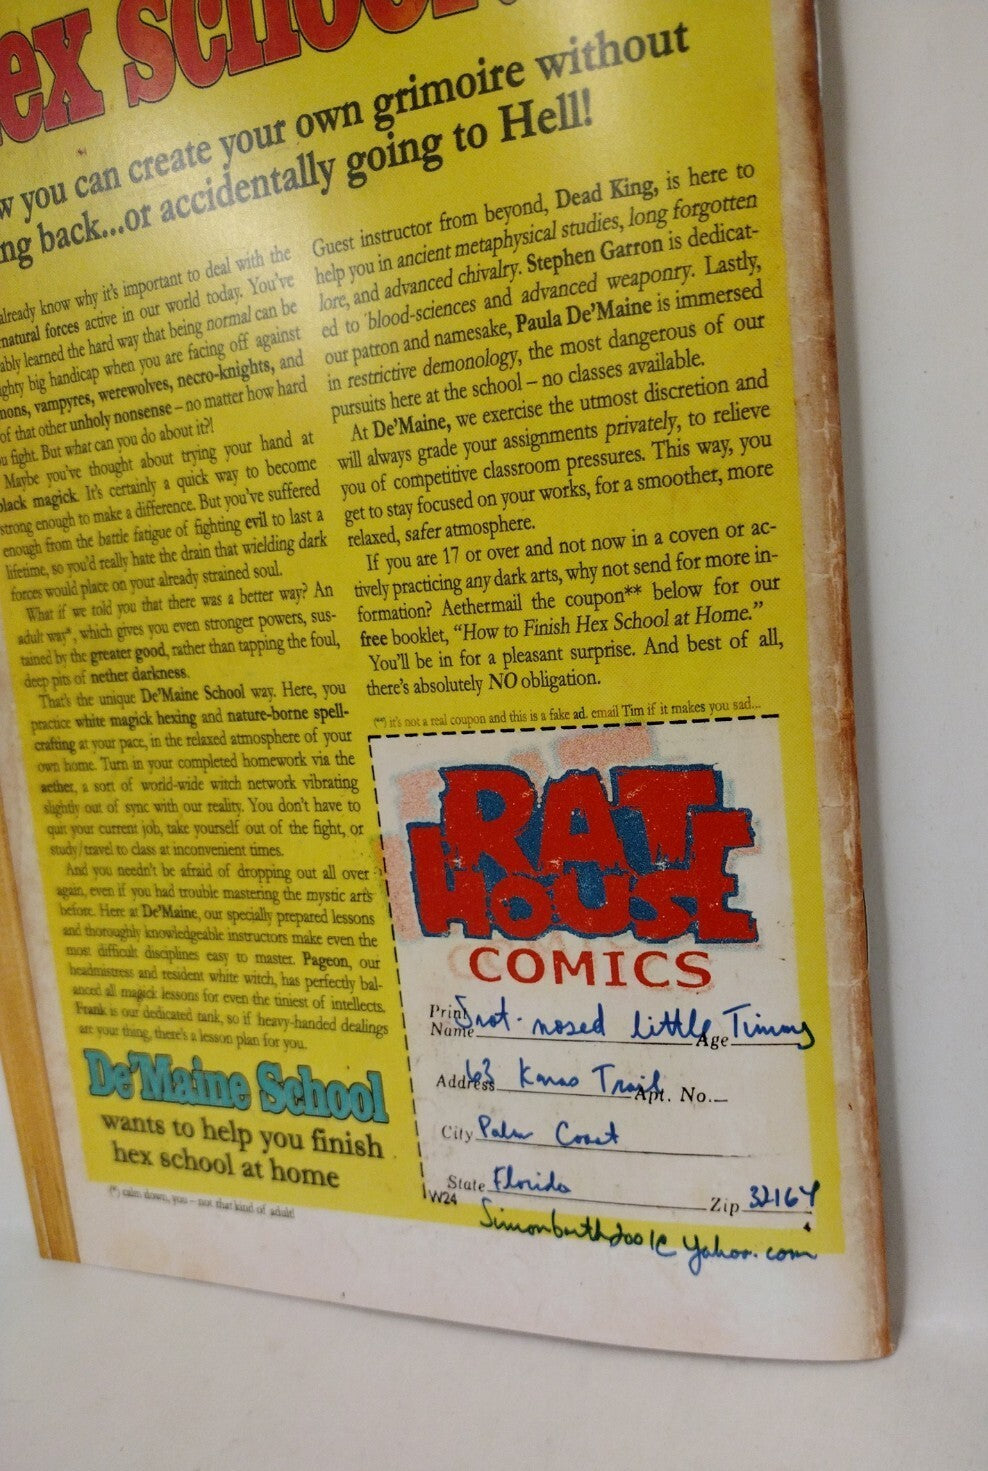 ex school
w you can create your own grimoire without
ng back...or accidentally going to Hell!
already know why it's important to deal with the
natural forces active in our world today. You've
ably learned the hard way that being normal can be
ghty big handicap when you are facing off against
mons, vampyres, werewolves, necro-knights, and
of that other unholy nonsense – no matter how hard
u fight. But what can you do about it?!
Maybe you've thought about trying your hand at
black magick. It's certainly a quick way to become
strong enough to make a difference. But you've suffered
enough from the battle fatigue of fighting evil to last a
lifetime, so you'd really hate the drain that wielding dark
forces would place on your already strained soul.
What if we told you that there was a better way? An
adult way*, which gives you even stronger powers, sus-
tained by the greater good, rather than tapping the foul,
deep pits of nether darkness.
That's the unique De'Maine School way. Here, you
practice white magick hexing and nature-borne spell-
crafting at your pace, in the relaxed atmosphere of your
own home. Turn in your completed homework via the
aether, a sort of world-wide witch network vibrating
slightly out of sync with our reality. You don't have to
quit your current job, take yourself out of the fight, or
study/travel to class at inconvenient times.
And you needn't be afraid of dropping out all over
again, even if you had trouble mastering the mystic arts
before. Here at De'Maine, our specially prepared lessons
and thoroughly knowledgeable instructors make even the
most difficult disciplines easy to master. Pageon, our
headmistress and resident white witch, has perfectly bal-
anced all magick lessons for even the tiniest of intellects.
Frank is our dedicated tank, so if heavy-handed dealings
are your thing, there's a lesson plan for you.
De'Maine School
wants to help you finish
hex school at home
(*) calm down, you – not that kind of adult!
Guest instructor from beyond, Dead King, is here to
help you in ancient metaphysical studies, long forgotten
lore, and advanced chivalry. Stephen Garron is dedicat-
ed to blood-sciences and advanced weaponry. Lastly,
our patron and namesake, Paula De'Maine is immersed
in restrictive demonology, the most dangerous of our
pursuits here at the school – no classes available.
At De'Maine, we exercise the utmost discretion and
will always grade your assignments privately, to relieve
you of competitive classroom pressures. This way, you
get to stay focused on your works, for a smoother, more
relaxed, safer atmosphere.
If you are 17 or over and not now in a coven or ac-
tively practicing any dark arts, why not send for more in-
formation? Aethermail the coupon** below for our
free booklet, "How to Finish Hex School at Home."
You'll be in for a pleasant surprise. And best of all,
there's absolutely NO obligation.
(**) it's not a real coupon and this is a fake ad. email Tim if it makes you sad...
RAT
HOUSE
COMICS
Print
Name Snot-nosed little Age Timmy
Address 63 Karas Trail Apt. No.
City Palm Coast
State Florida Zip 32164
W24
4
Simonbarth2001@yahoo.com